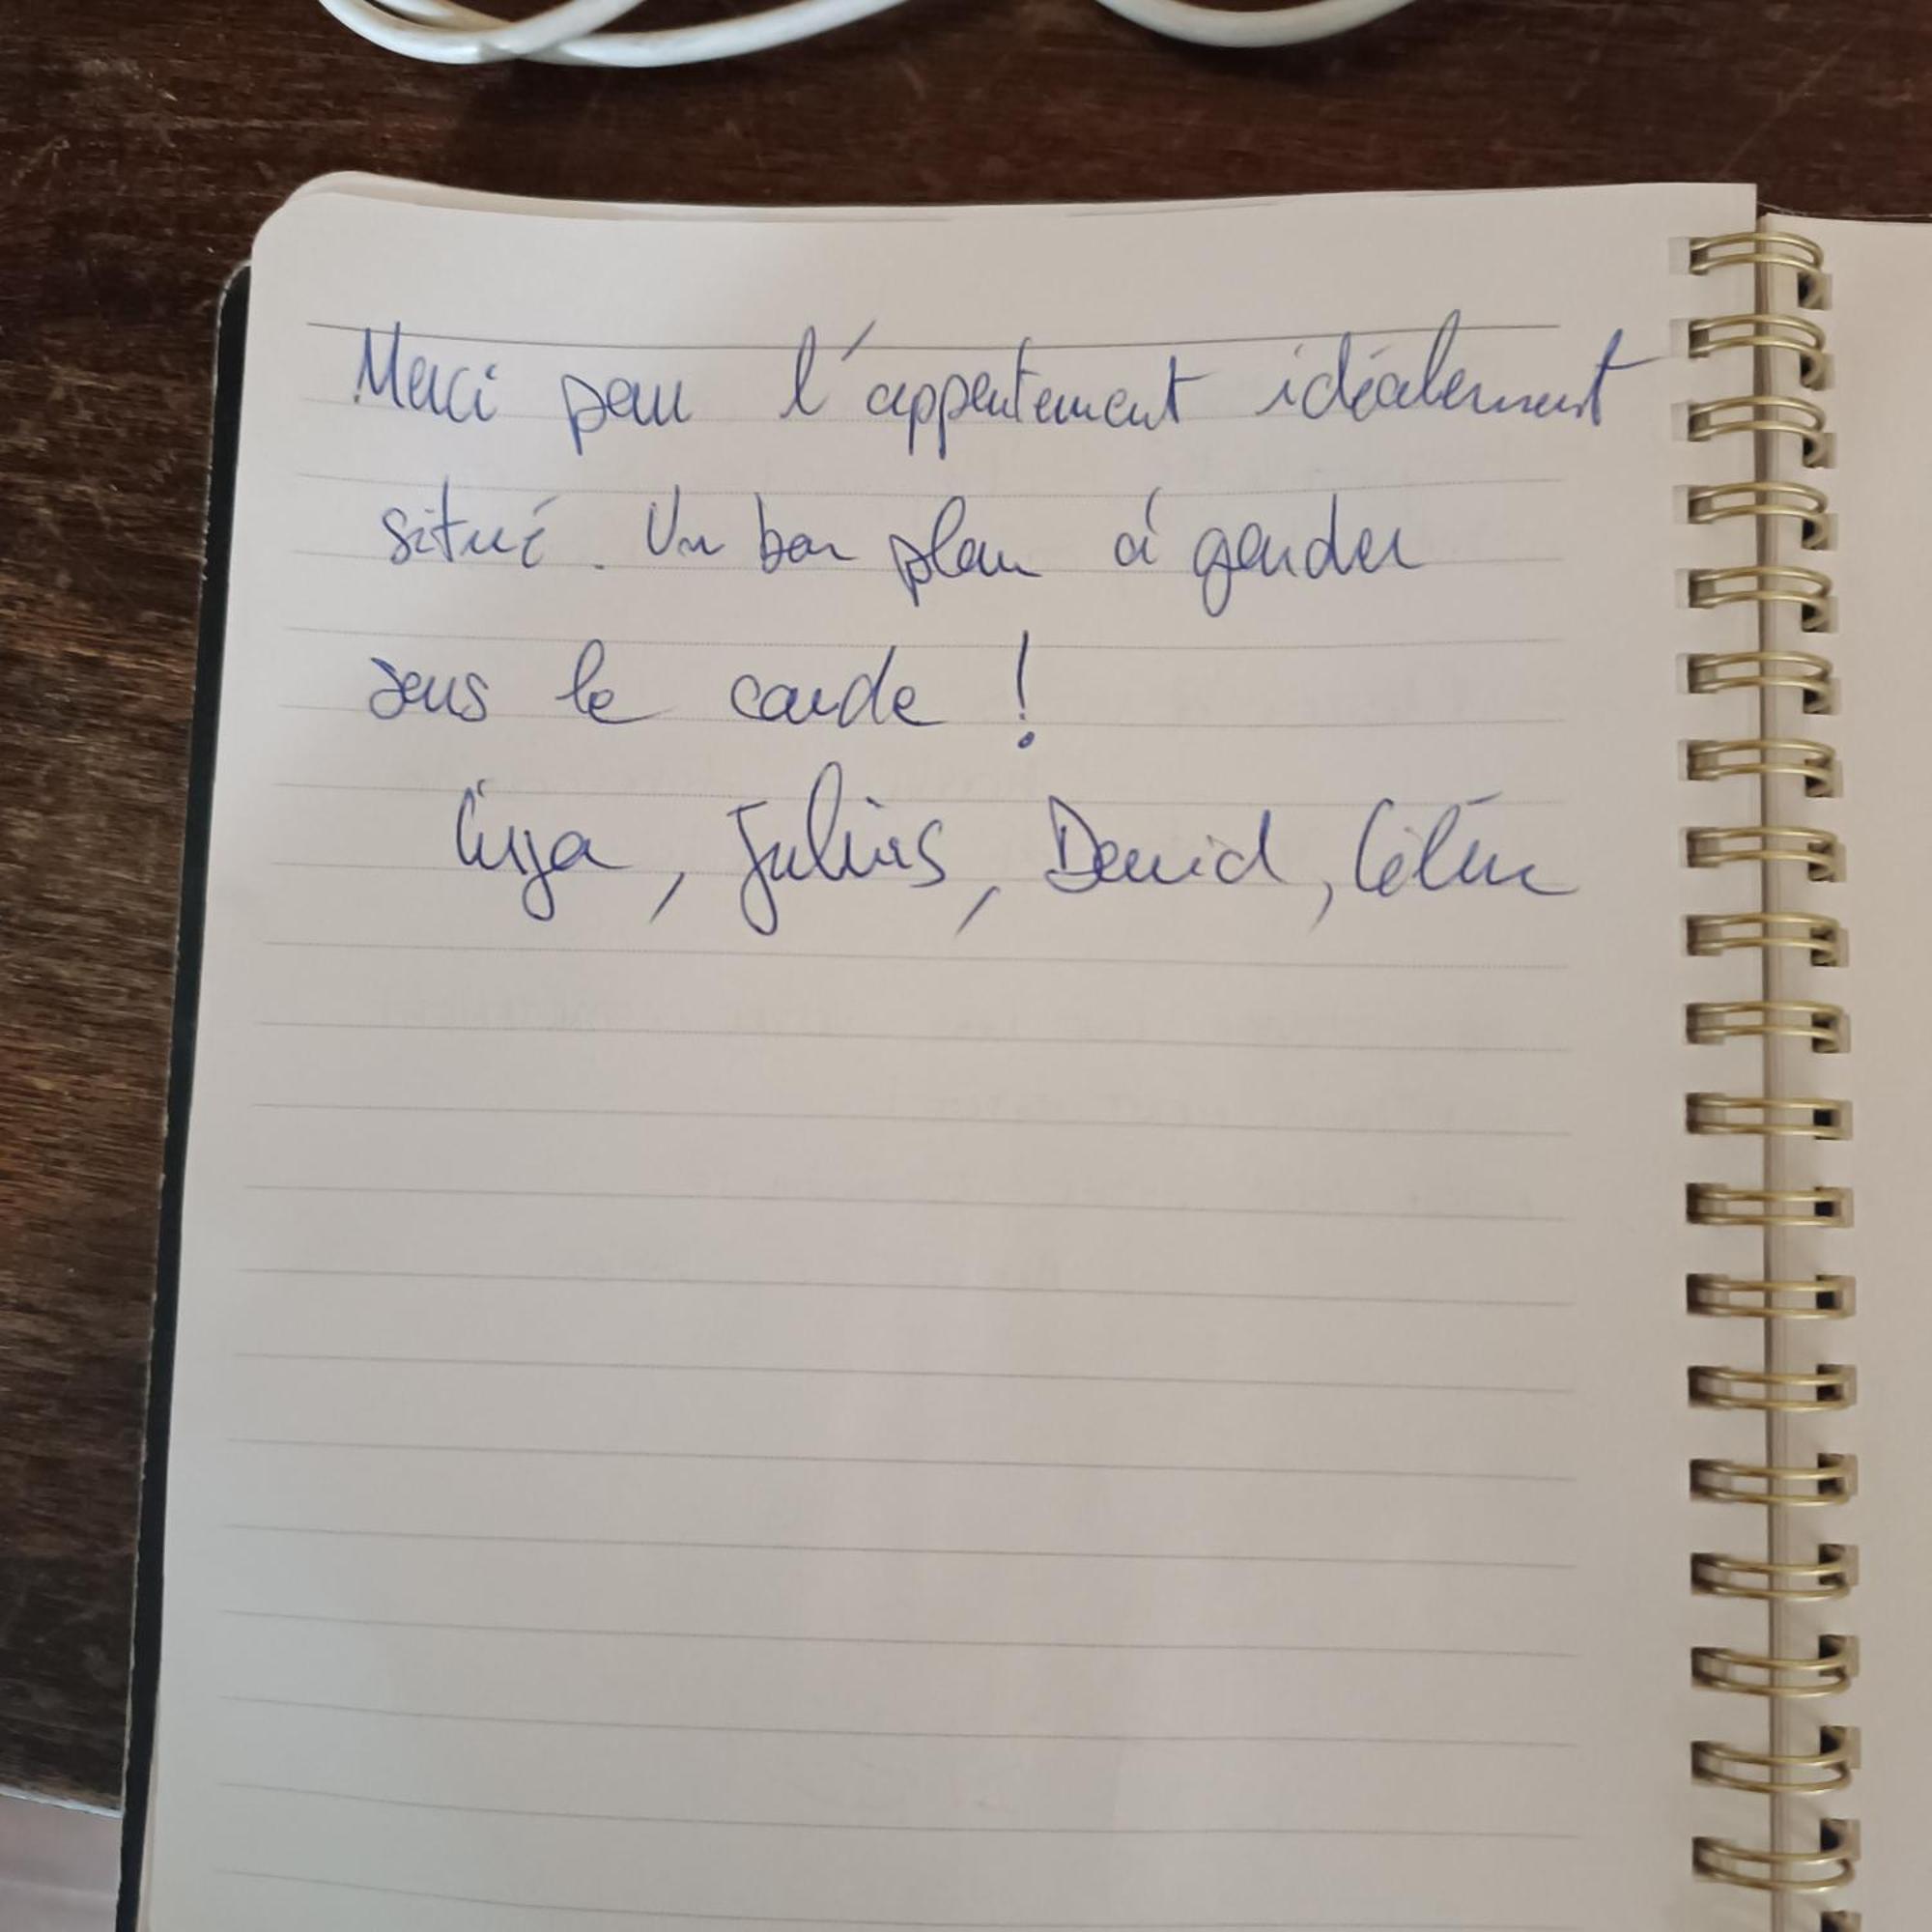 Merci pour l'appartement idéalement
situé. Un bon plan à garder
sous le coude !
Julius, David, Céline